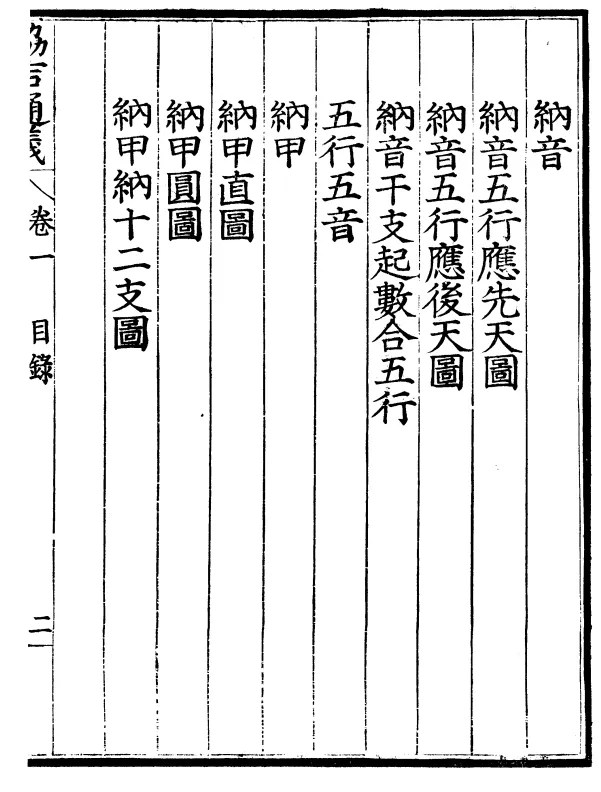 納音
納音五行應先天圖
納音五行應後天圖
納音干支起數合五行
五行五音
納甲
納甲直圖
納甲圓圖
納甲納十二支圖
通義 卷一 目錄 二